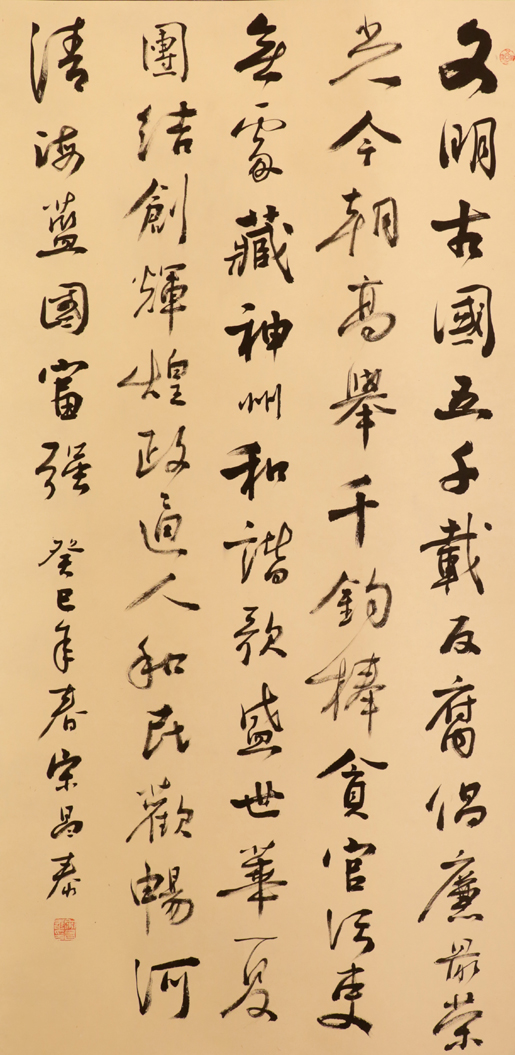 文明古國五千載反腐倡廉最榮
光今朝高舉千鈞棒貪官污吏
無處藏神州和諧歌盛世華夏
團結創輝煌政通人和民歡暢河
清海藍國富強 癸巳年春宋昌泰